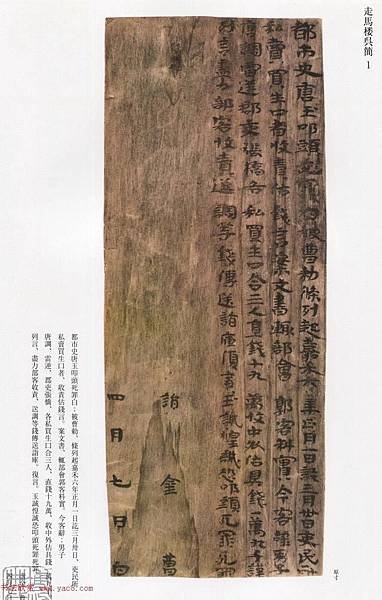 走馬楼吳簡 1
都市史唐玉叩頭死罪白被曹勅條列起嘉禾六年正月一日訖三月卅日吏民所
私賣買生口者收責估錢言案文書輒部會郭客料實今客辭男子
唐調雷逆郡吏張橋各私買生口合三人直錢十九萬收中外估具錢一萬九千謹
列言盡力部客收責送調等錢傳送詣庫復言玉誠惶誠恐叩頭死罪死罪
詣金曹
四月七日白
原寸
都市史唐玉叩頭死罪白：被曹勅，條列起嘉禾六年正月一日訖三月卅日，吏民所
私賣買生口者，收責估錢言。案文書，輒部會郭客料實。今客辭：男子
唐調、雷逆、郡吏張橋，各私買生口合三人，直錢十九萬，收中外估具錢一萬
列言。盡力部客收責，送調等錢傳送詣庫。復言。玉誠惶誠恐叩頭死罪死
www.yac8.com